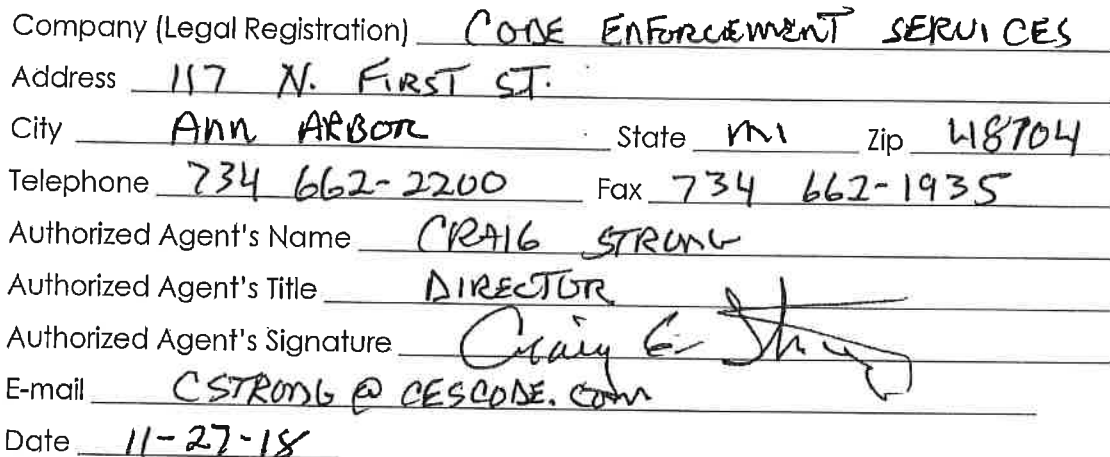 Company (Legal Registration) CODE ENFORCEMENT SERVICES
Address 117 N. FIRST ST.
City Ann ARBOR State MI Zip 48104
Telephone 734 662-2200 Fax 734 662-1935
Authorized Agent's Name CRAIG STRONG
Authorized Agent's Title DIRECTOR
Authorized Agent's Signature Craig E. Strong
E-mail CSTRONG@CESCODE.COM
Date 11-27-18